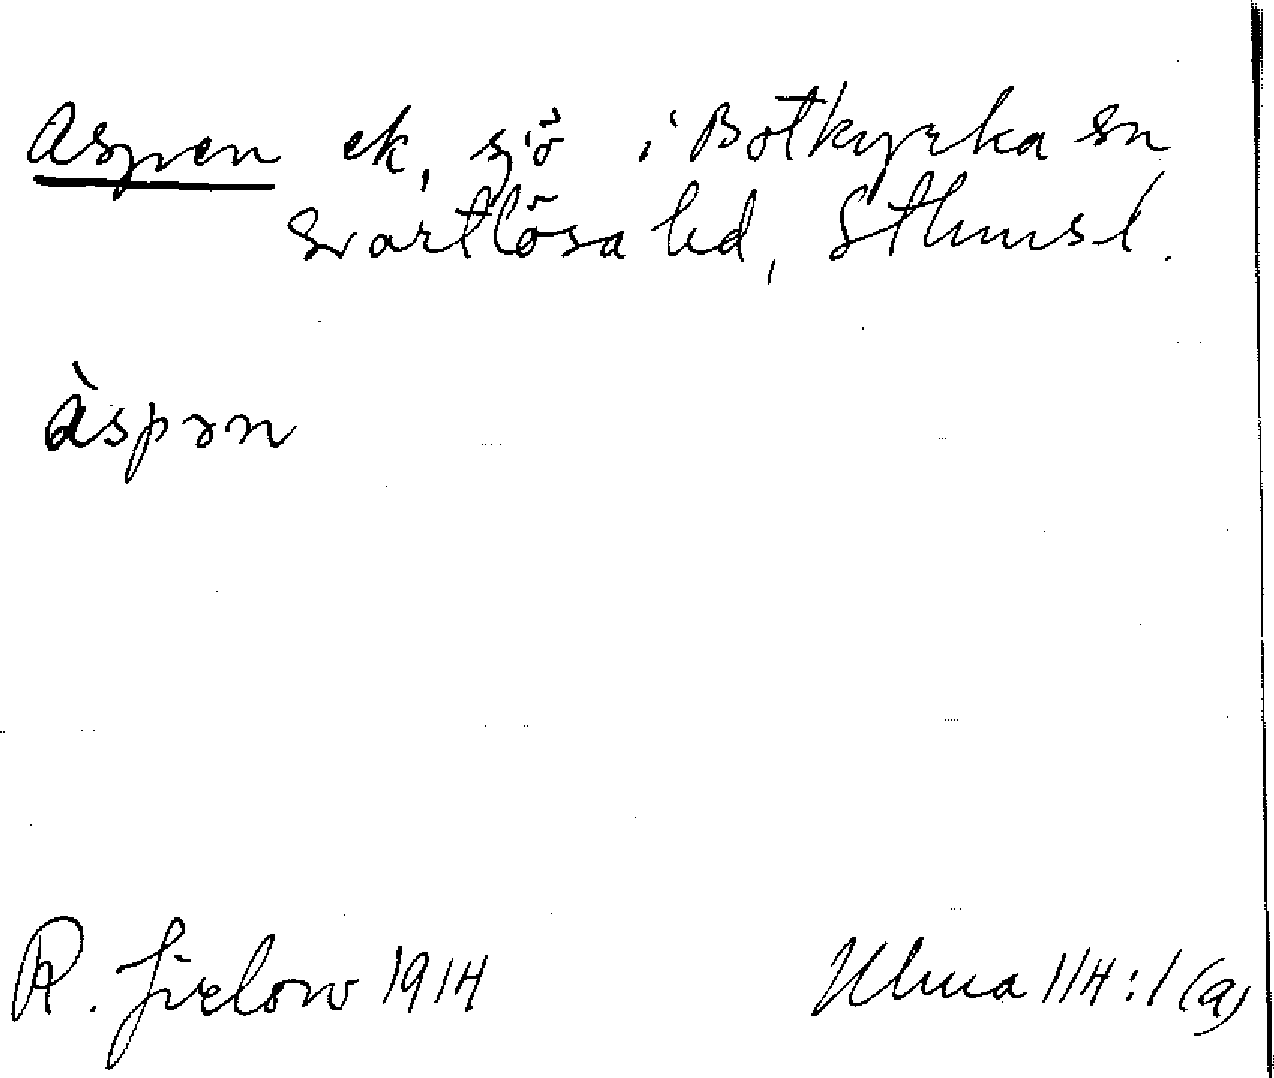 Aspen ek, sjö i Botkyrka sn
Svartlösa hd, Sthmsl.
àspən
R. Jirlow 1914
Ulma 114:1 (a)